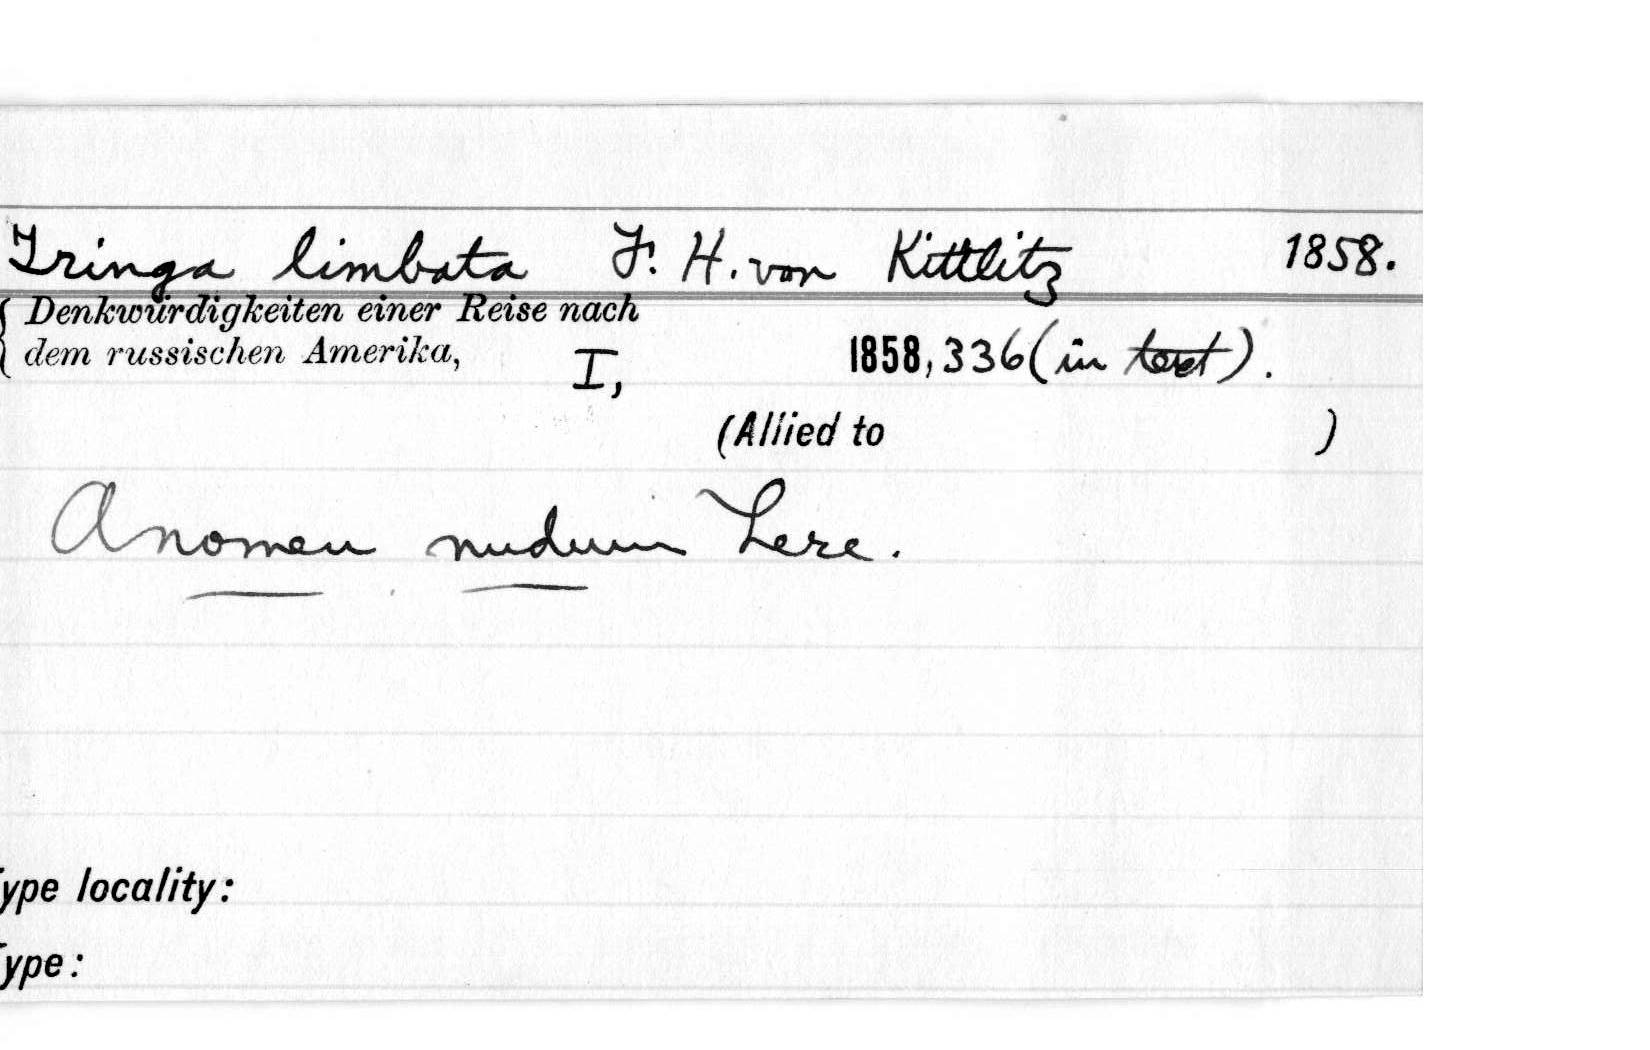 Tringa limbata F. H. von Kittlitz 1858.
{ Denkwürdigkeiten einer Reise nach
dem russischen Amerika, I, 1858, 336 (in text).
(Allied to )
A nomen nudum here.
ype locality:
ype: